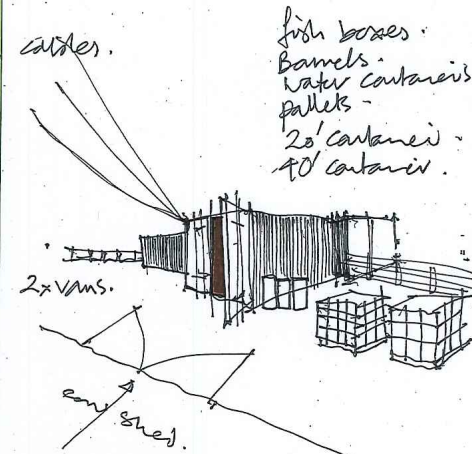 cables.
fish boxes.
Barrels.
water containers
pallets.
20' container.
40' container.
2x vans.
shed.